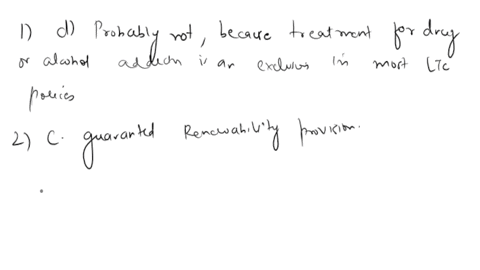 1) d) Probably not, because treatment for drug
or alcohol addictn is an exclusion in most LTC
policies
2) C. guaranted Renewability provision.